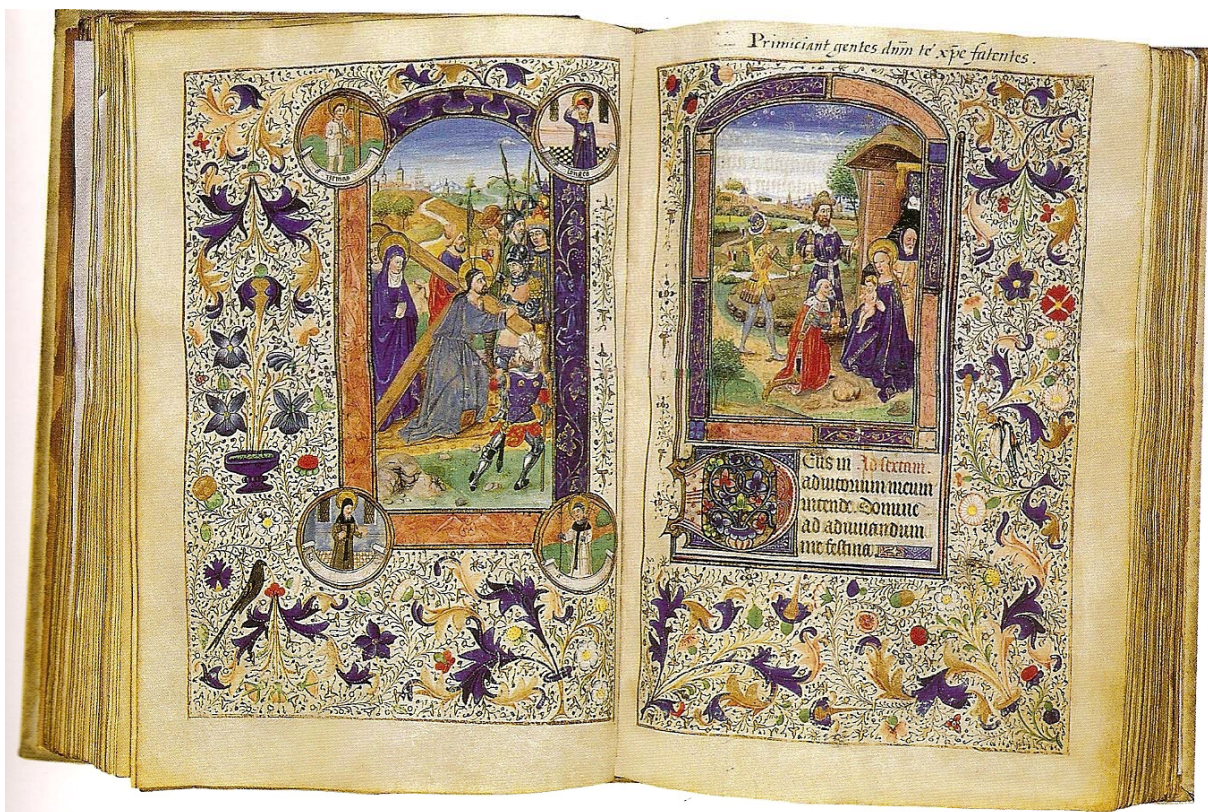 Dismas
longi9
Primiciant gentes dnm te xpe fatentes.
Eus in Ad sextam.
adiutorium meum
intende. Domine
ad adiuuandum
me festina